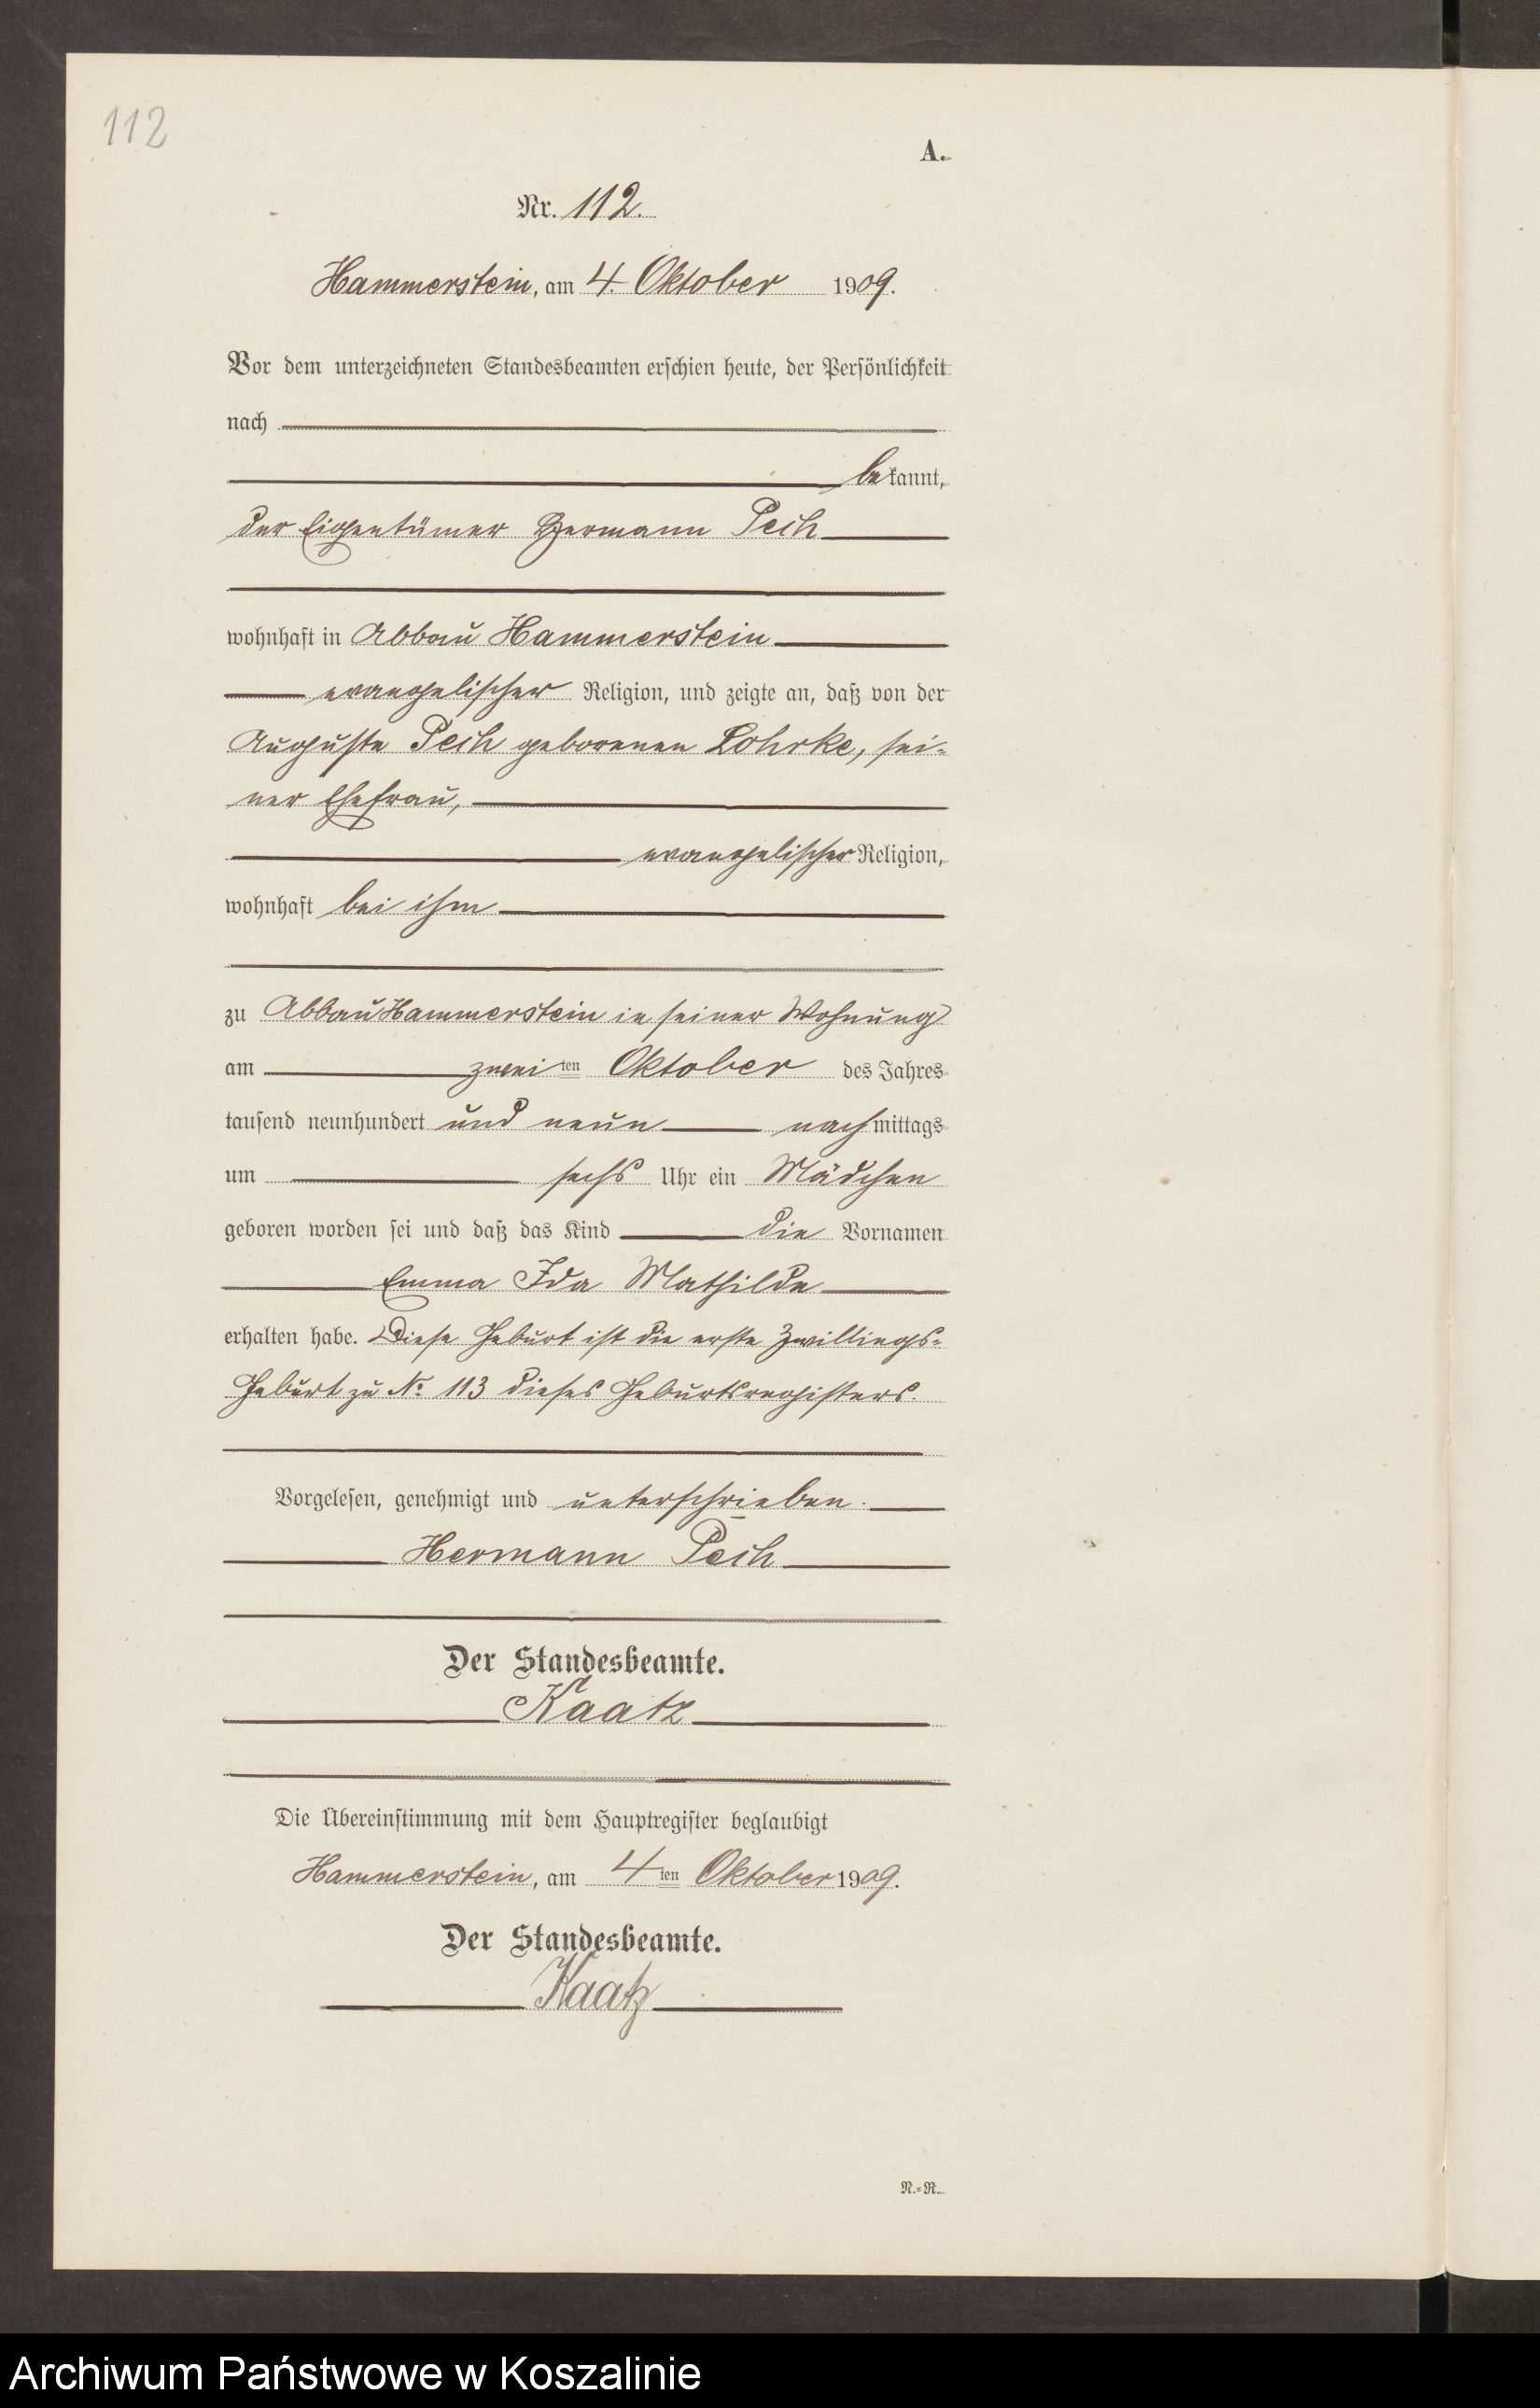 112
A.
Nr. 112.
Hammerstein, am 4. Oktober 1909.
Vor dem unterzeichneten Standesbeamten erschien heute, der Persönlichkeit
nach
bekannt,
der Eigentümer Hermann Pech
wohnhaft in Abbau Hammerstein
evangelischer Religion, und zeigte an, daß von der
Auguste Pech geborenen Lohrke, sei-
ner Ehefrau,
evangelischer Religion,
wohnhaft bei ihm
zu Abbau Hammerstein in seiner Wohnung
am zweiten Oktober des Jahres
tausend neunhundert und neun nachmittags
um sechs Uhr ein Mädchen
geboren worden sei und daß das Kind die Vornamen
Emma Ida Mathilde
erhalten habe. Diese Geburt ist die erste Zwillings-
Geburt zu No 113 dieses Geburtsregisters.
Vorgelesen, genehmigt und unterschrieben.
Hermann Pech
Der Standesbeamte.
Kaatz
Die Übereinstimmung mit dem Hauptregister beglaubigt
Hammerstein, am 4ten Oktober 1909.
Der Standesbeamte.
Kaatz
N.-R.
Archiwum Państwowe w Koszalinie